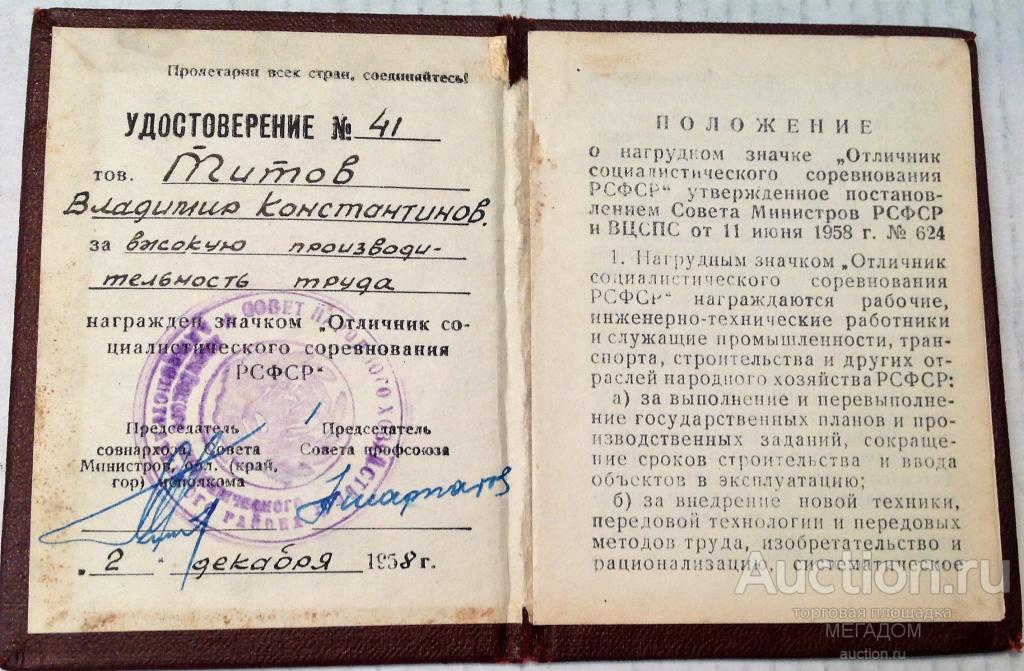 Пролетарии всех стран, соединяйтесь!
УДОСТОВЕРЕНИЕ № 41
тов. Титов
Владимир Константинов.
за високую производи-
тельность труда
награжден значком „Отличник со-
циалистического соревнования
РСФСР“
Председатель
совнархоза, Совета
Министров, обл. (край,
гор) исполкома
Председатель
Совета профсоюза
„2“ декабря 1958 г.
СОВЕТ НАРОДНОГО ХОЗЯЙСТВА
РАЙОНА
ПОЛОЖЕНИЕ
о нагрудном значке „Отличник
социалистического соревнования
РСФСР“ утвержденное постанов-
лением Совета Министров РСФСР
и ВЦСПС от 11 июня 1958 г. № 624
1. Нагрудным значком „Отличник
социалистического соревнования
РСФСР“ награждаются рабочие,
инженерно-технические работники
и служащие промышленности, тран-
спорта, строительства и других от-
раслей народного хозяйства РСФСР:
а) за выполнение и перевыполне-
ние государственных планов и про-
изводственных заданий, сокраще-
ние сроков строительства и ввода
объектов в эксплуатацию;
б) за внедрение новой техники,
передовой технологии и передовых
методов труда, изобретательство и
рационализацию, систематическое
Auction.ru
торговая площадка
МЕГАДОМ
auction.ru